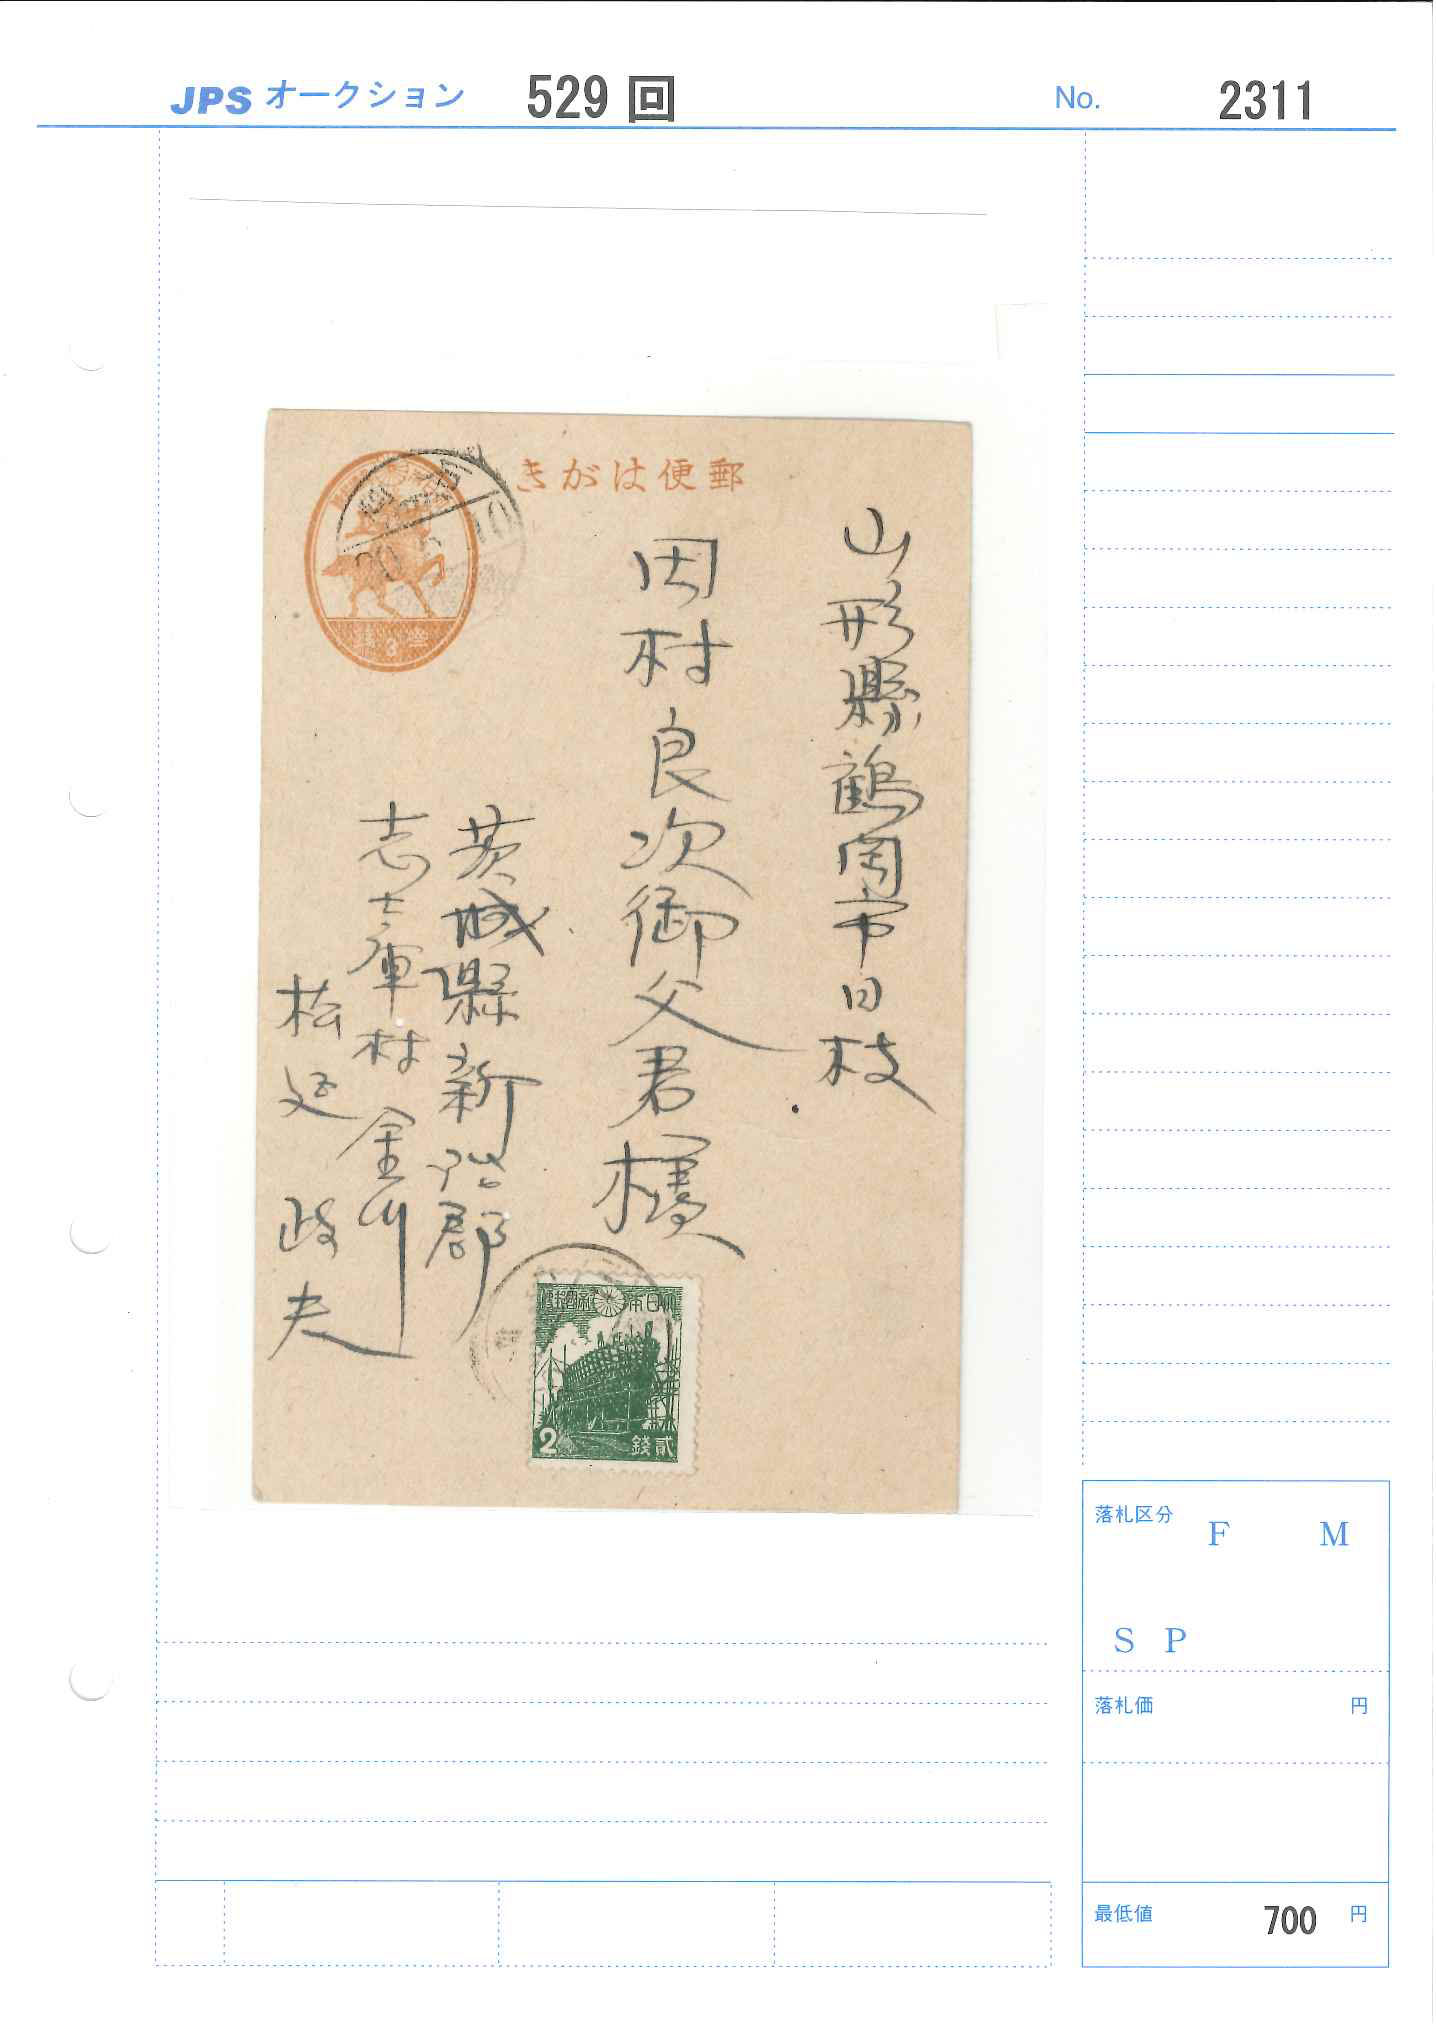 JPS オークション 529 回 No. 2311
きがは便郵
山形縣鶴岡市日枝
田村良次御父君様
茨城縣新治郡
志士庫村 金川
松延 政夫
20. 5. 10
2 錢貳
落札区分 F M
S P
落札価 円
最低値 700 円